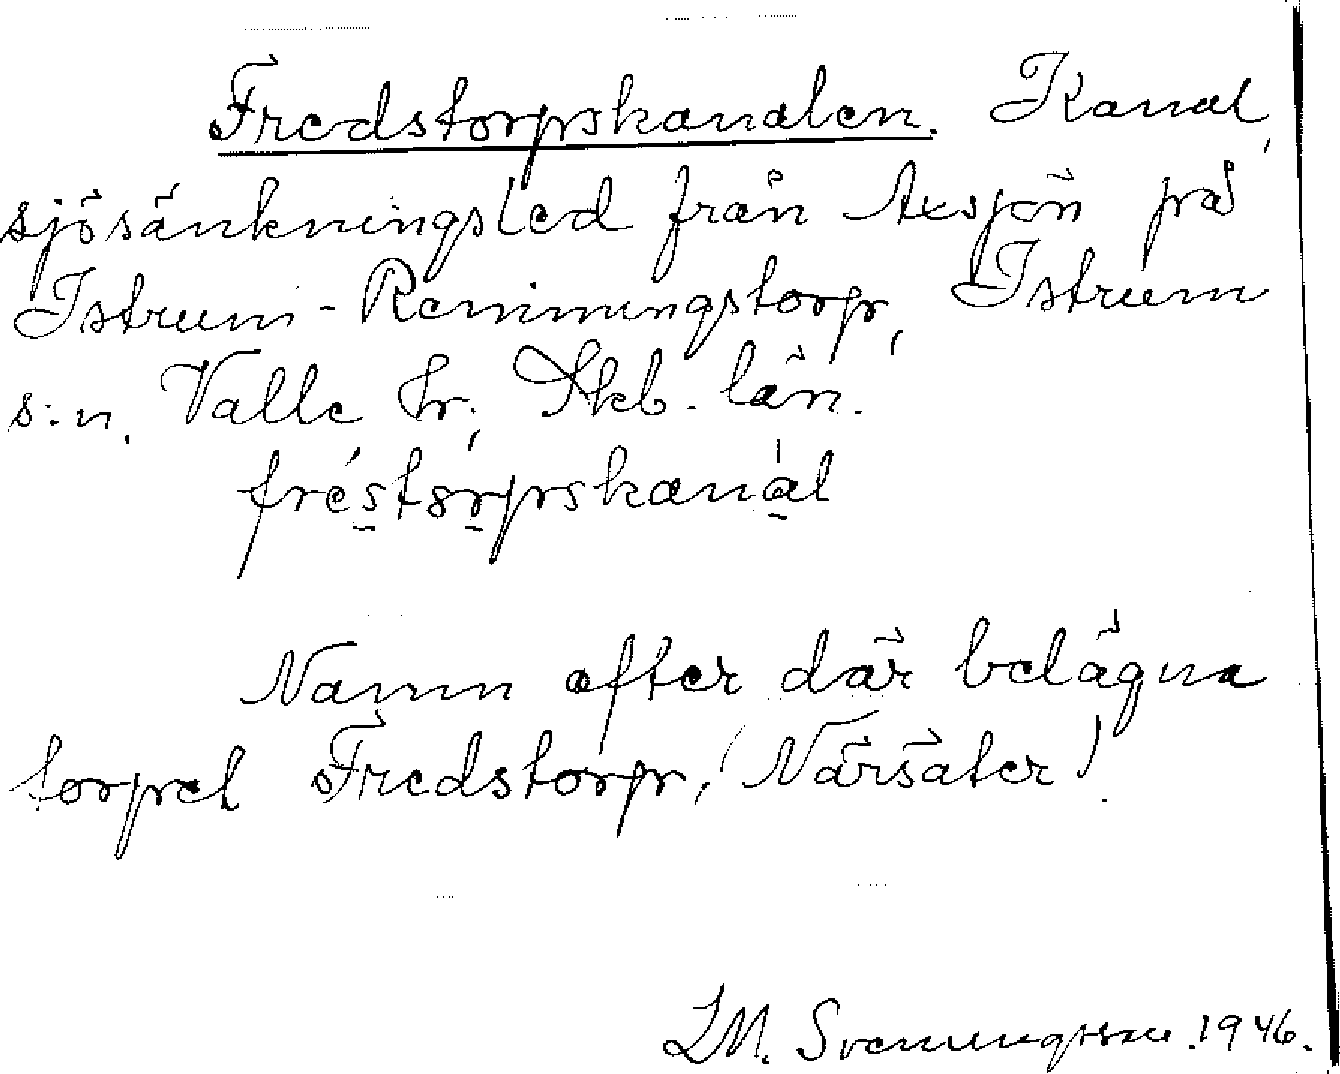 Fredstorpskanalen. Kanal,
sjösänkningsled från Axsjön på
Istrum-Remmingstorp, Istrum
s:n, Valle hr; Skb. län.
fréstorpskanàl
Namn after där belägna
torpet Fredstorp, (Närsäter).
LM. Svenungsson. 1946.